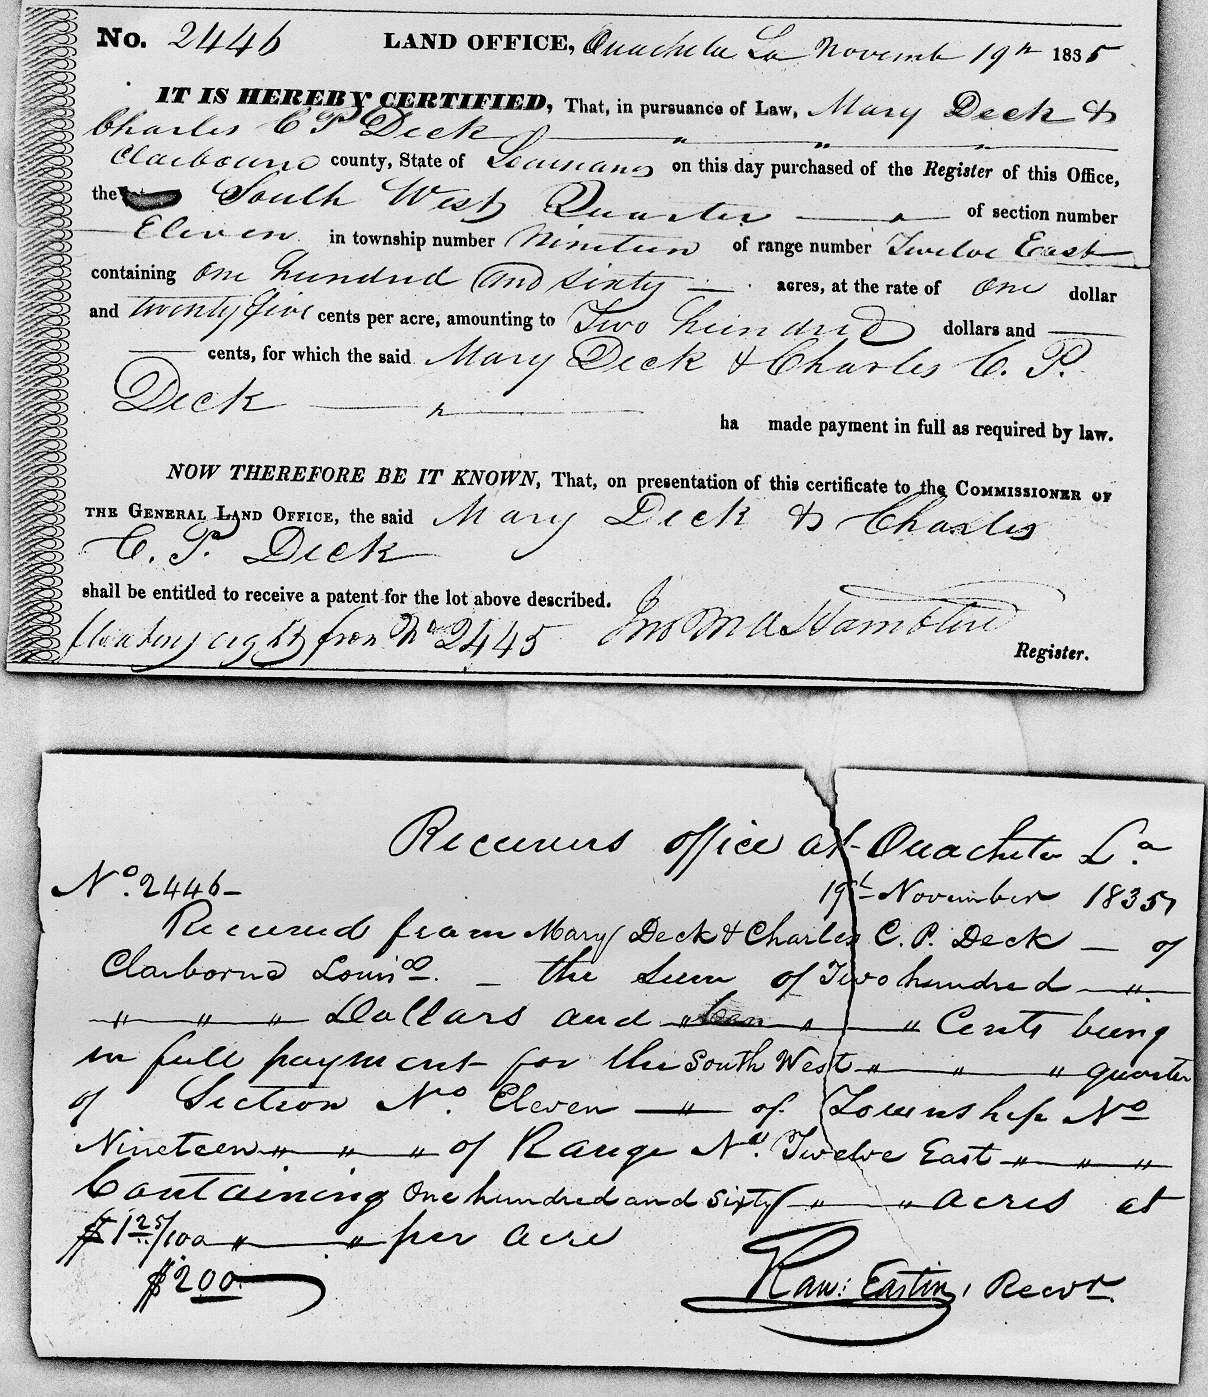 No. 2446 LAND OFFICE, Ouachita La Novemb 19th 1835
IT IS HEREBY CERTIFIED, That, in pursuance of Law, Mary Deck &
Charles C P Deck — " " "
Claibourne county, State of Louisiana on this day purchased of the Register of this Office,
the South West Quarter — " — of section number
— Eleven in township number Nineteen of range number Twelve East
containing One hundred and sixty — acres, at the rate of One dollar
and twenty five cents per acre, amounting to Two hundred dollars and —
— cents, for which the said Mary Deck & Charles C. P.
Deck — " — ha made payment in full as required by law.
NOW THEREFORE BE IT KNOWN, That, on presentation of this certificate to the COMMISSIONER OF
THE GENERAL LAND OFFICE, the said Mary Deck & Charles
C. P. Deck
shall be entitled to receive a patent for the lot above described.
floating right from No 2445
Register.
Receivers office at Ouachita La
No. 2446 –
19th November 1835
Received from Mary Deck & Charles C. P. Deck — of
Claiborne Louisa. — the sum of Two hundred — " —
" " " Dollars and " " " Cents being
in full payment for the South West " " " quarter
of Section No. Eleven — " — of Township No
Nineteen " " " of Range No. Twelve East " " "
Containing One hundred and Sixty " " acres at
$1 25/100 " " per acre
$200
Eastin, Recvr